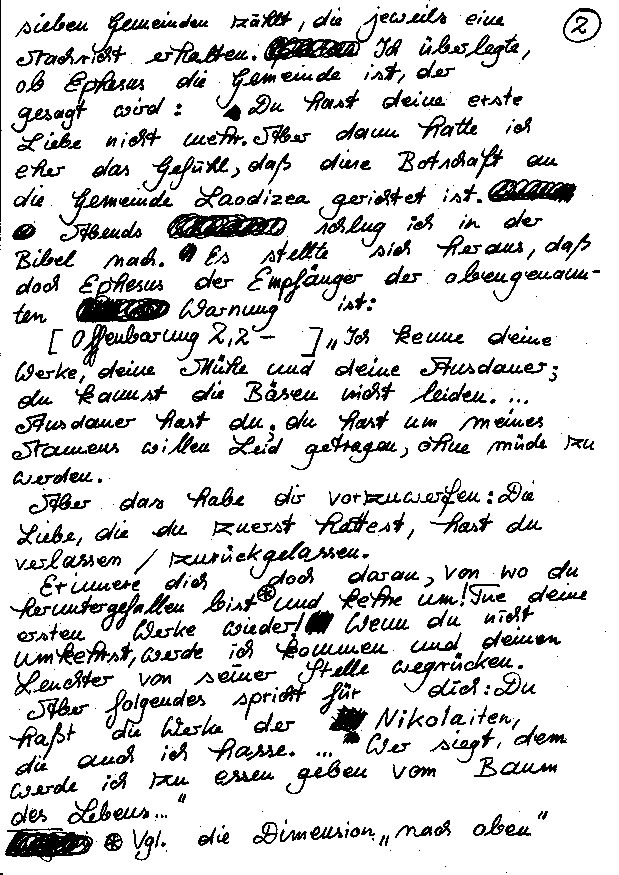 sieben Gemeinden zählt, die jeweils eine
②
Nachricht erhalten. Ich überlegte,
ob Ephesus die Gemeinde ist, der
gesagt wird: Du hast deine erste
Liebe nicht mehr. Aber dann hatte ich
eher das Gefühl, daß diese Botschaft an
die Gemeinde Laodizea gerichtet ist.
Abends schlug ich in der
Bibel nach. Es stellte sich heraus, daß
doch Ephesus der Empfänger der obengenann-
ten Warnung ist:
[Offenbarung 2,2 - ] „Ich kenne deine
Werke, deine Mühe und deine Ausdauer;
du kannst die Bösen nicht leiden. ...
Ausdauer hast du, du hast um meines
Namens willen Leid getragen, ohne müde zu
werden.
Aber das habe dir vorzuwerfen: Die
Liebe, die du zuerst hattest, hast du
verlassen / zurückgelassen.
Erinnere dich doch daran, von wo du
heruntergefallen bist⊛ und kehre um! Tue deine
ersten Werke wieder! Wenn du nicht
umkehrst, werde ich kommen und deinen
Leuchter von seiner Stelle wegrücken.
Aber folgendes spricht für dich: Du
haßt die Werke der Nikolaiten,
die auch ich hasse. ... Wer siegt, dem
werde ich zu essen geben vom Baum
des Lebens..."
⊛ Vgl. die Dimension „nach oben"